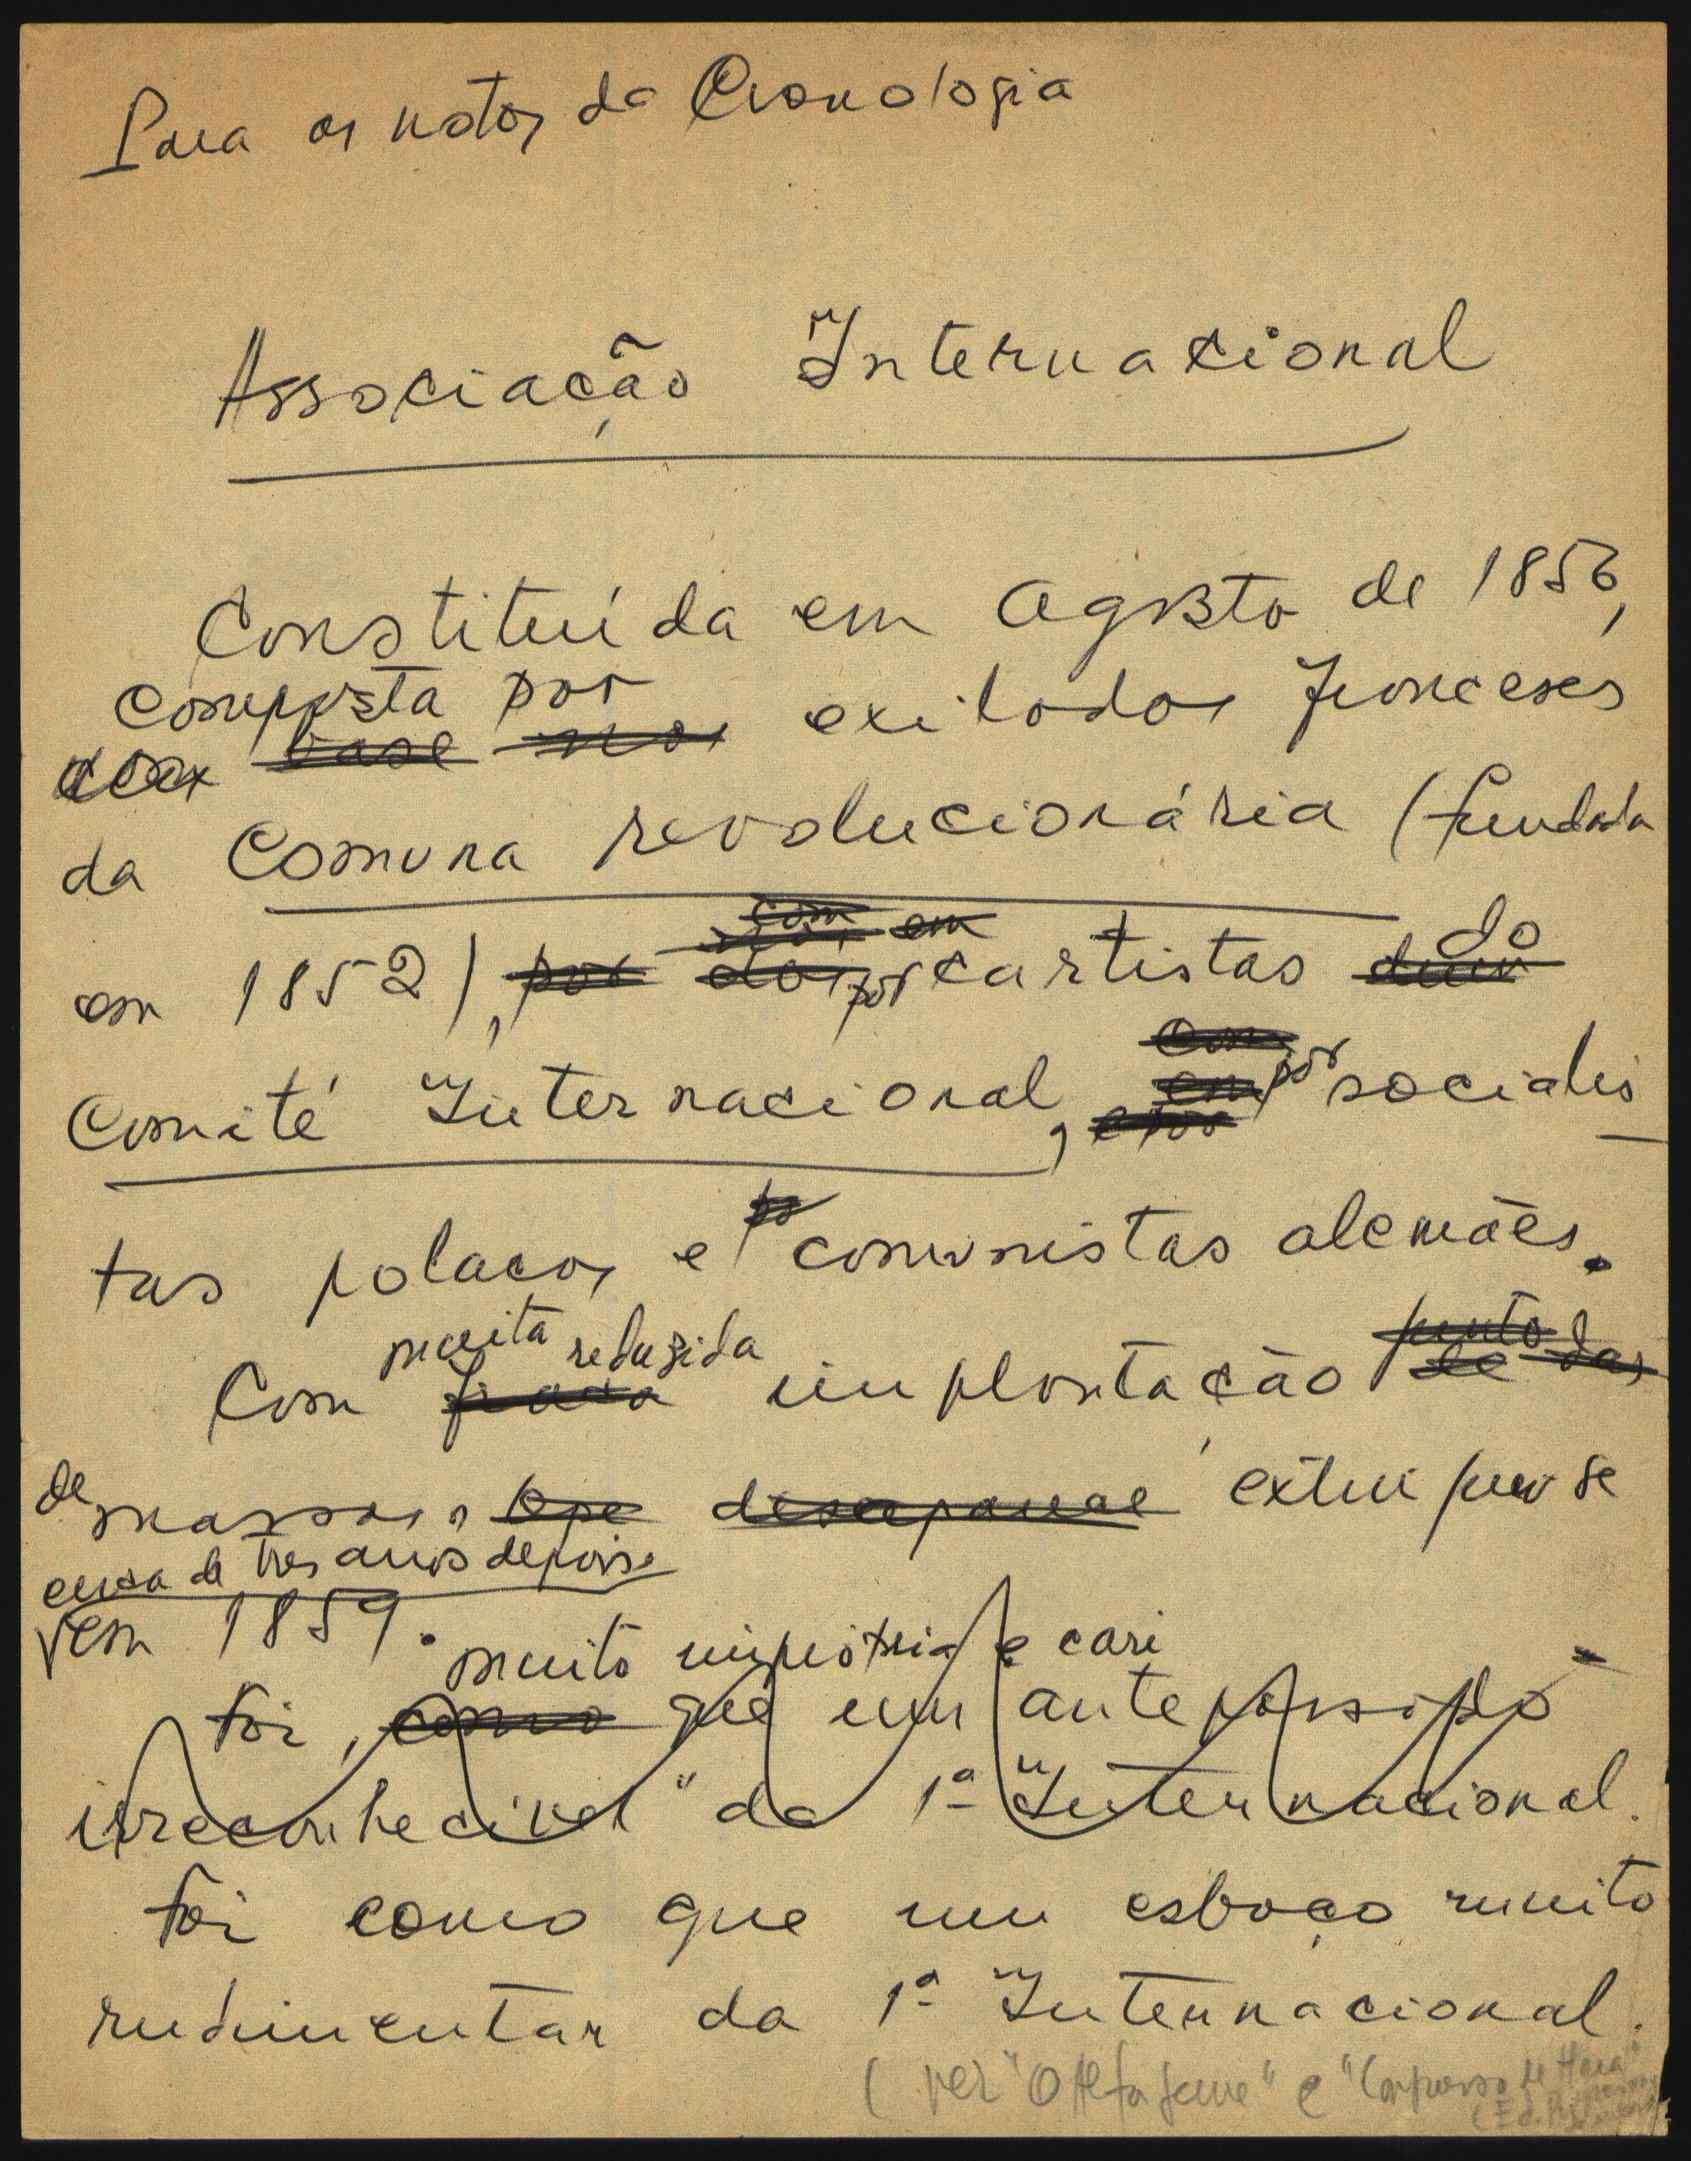 Para as notas da Cronologia
Associação Internacional
Constituída em Agosto de 1856,
composta por
base nos exilados franceses
da Comuna revolucionária (fundada
com em
em 1852), por dos por cartistas do
em
Comité Internacional, em por socialis-
e por
tas polacos e comunistas alemães.
muito reduzida
Com fraca implantação junto das
de massas, desaparece extingue-se
cerca de três anos depois.
em 1859.
muito
Foi, como que um antepassado
irreconhecível" da 1ª Internacional.
Foi como que um esboço muito
rudimentar da 1ª Internacional.
(ver "O Alfageme" e "Congresso de Haia"
(Ed.